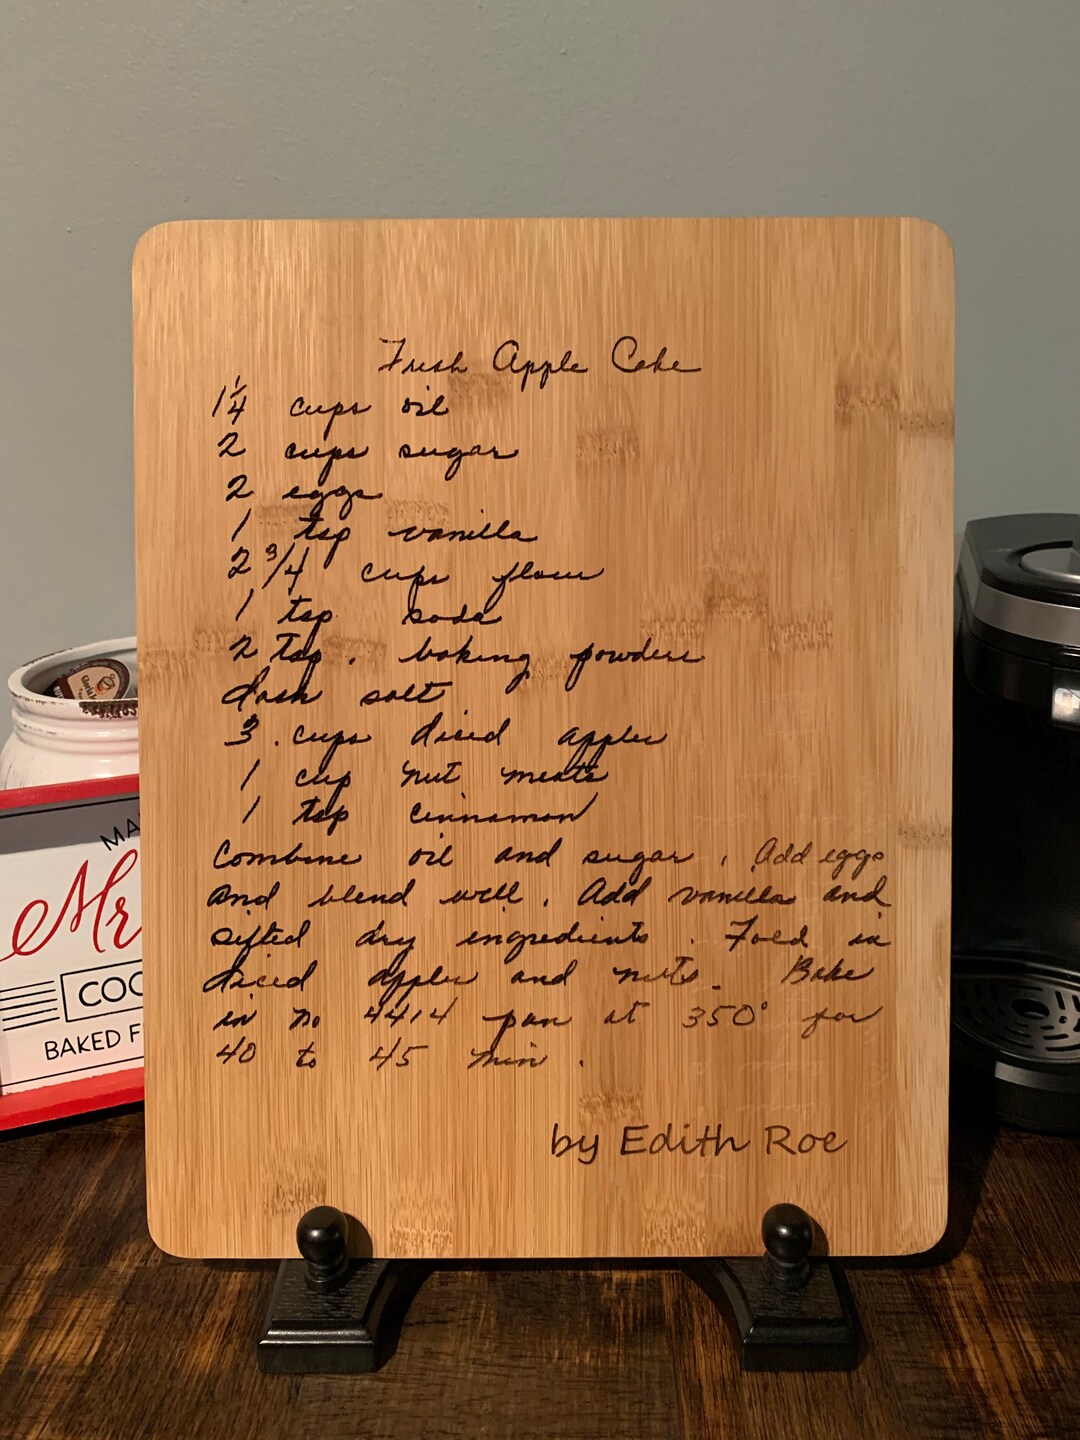 Fresh Apple Cake
1 1/4 cups oil
2 cups sugar
2 eggs
1 tsp vanilla
2 3/4 cups flour
1 tsp soda
2 tsp. baking powder
dash salt
3 cups diced apples
1 cup nut meats
1 tsp cinnamon
Combine oil and sugar. Add eggs
and blend well. Add vanilla and
sifted dry ingredients. Fold in
diced apples and nuts. Bake
in no 4414 pan at 350° for
40 to 45 min.
by Edith Roe
MA
Mr
COO
BAKED F